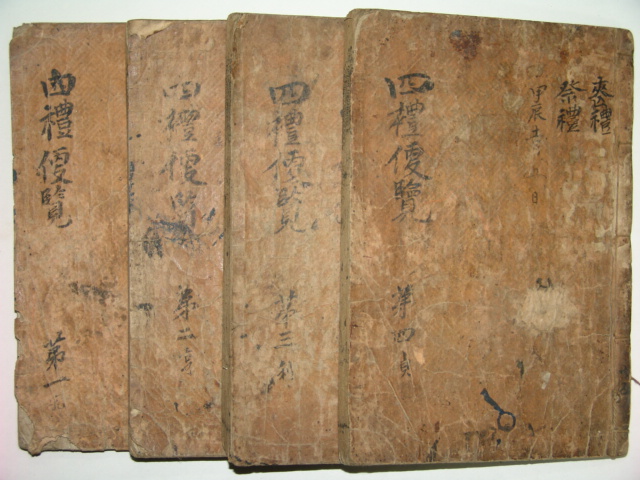 四禮便覽
第一
四禮便覽
第二亨
四禮便覽
第三利
喪禮
祭禮
甲辰
日
四禮便覽
第四貞